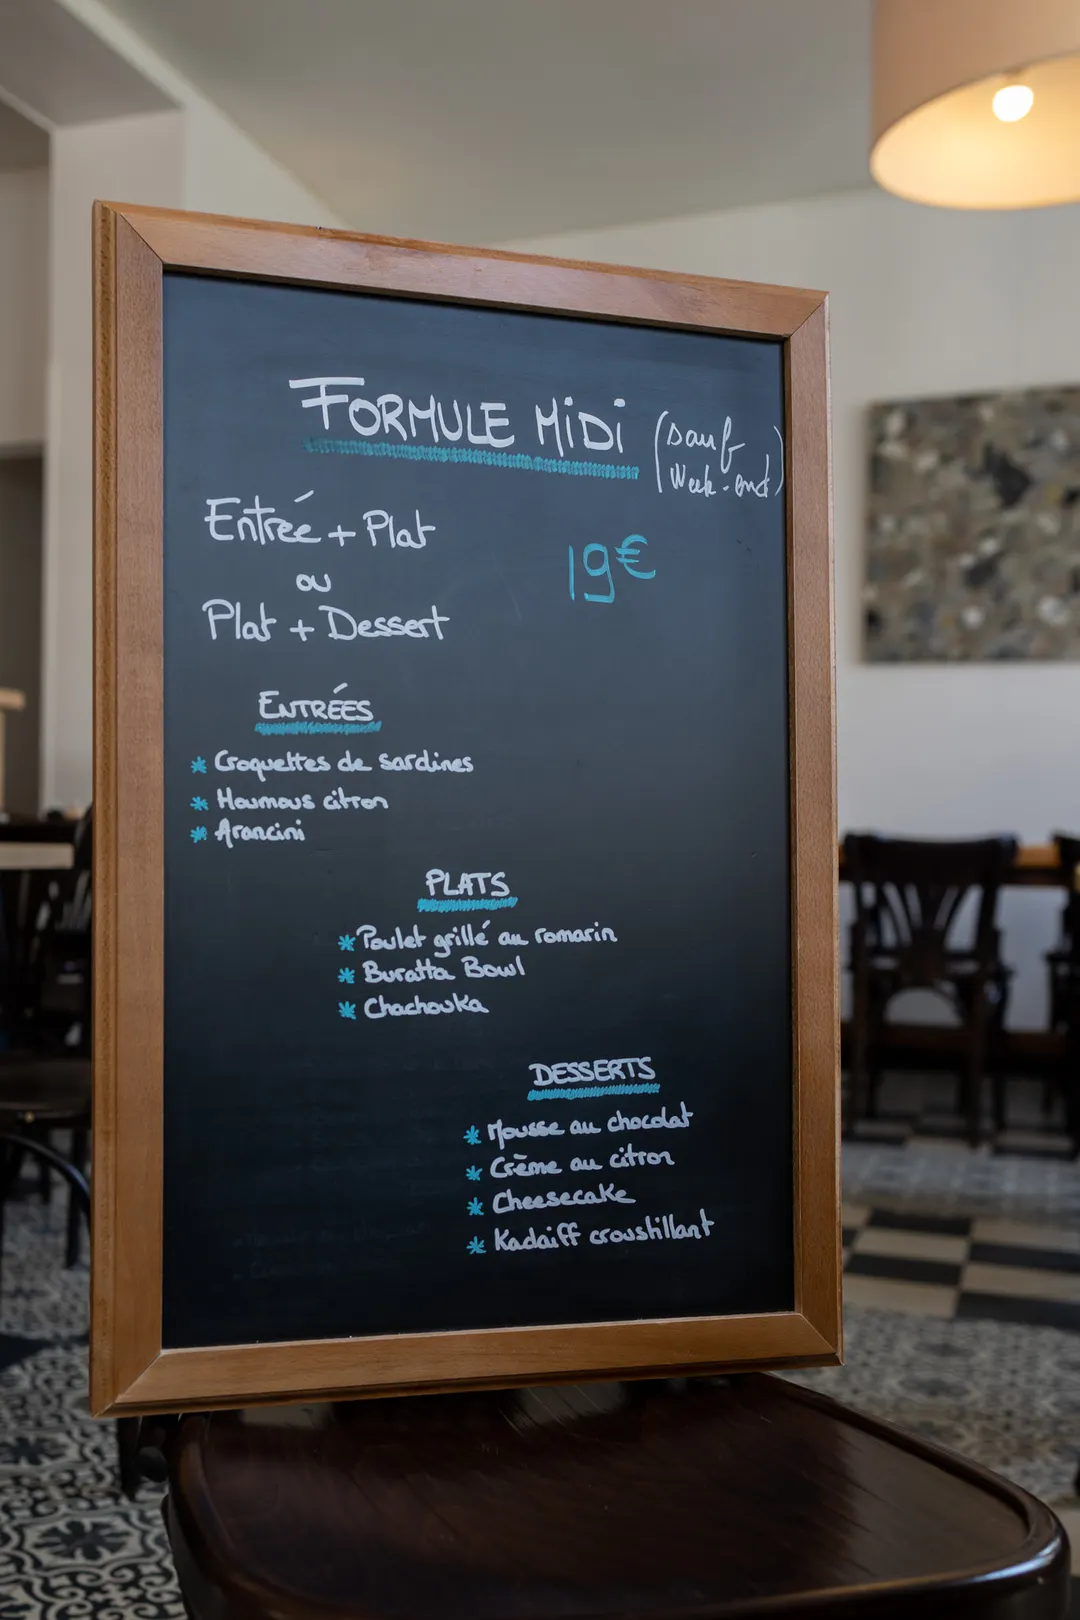 FORMULE MiDi (sauf
Week-end)
Entrée + Plat
ou
19€
Plat + Dessert
ENTRÉES
* Croquettes de sardines
* Houmous citron
* Arancini
PLATS
* Poulet grillé au romarin
* Buratta Bowl
* Chachouka
DESSERTS
* Mousse au chocolat
* Crème au citron
* Cheesecake
* Kadaiff croustillant